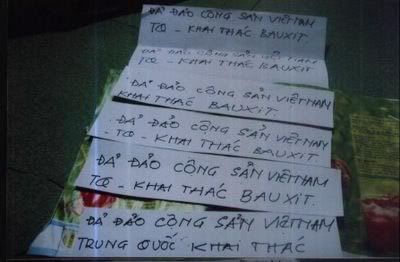 ĐẢ ĐẢO CỘNG SẢN VIỆTNAM
TQ - KHAI THÁC BAUXIT
ĐẢ ĐẢO CỘNG SẢN VIỆTNAM
TQ - KHAI THÁC BAUXIT
ĐẢ ĐẢO CỘNG SẢN VIỆTNAM
KHAI THÁC BAUXIT.
ĐẢ ĐẢO CỘNG SẢN VIỆTNAM
TQ - KHAI THÁC BAUXIT.
ĐẢ ĐẢO CỘNG SẢN VIỆTNAM
TQ - KHAI THÁC BAUXIT.
ĐẢ ĐẢO CỘNG SẢN VIỆTNAM
TRUNG QUỐC KHAI THÁC